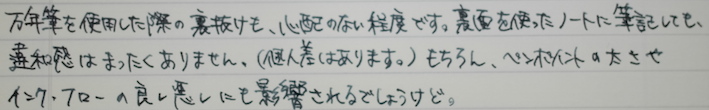 万年筆を使用した際の裏抜けも、心配のない程度です。裏面を使ったノートに筆記しても、
違和感はまったくありません。(個人差はあります。)もちろん、ペンポイントの太さや
インク・フローの良し悪しにも影響されるでしょうけど。